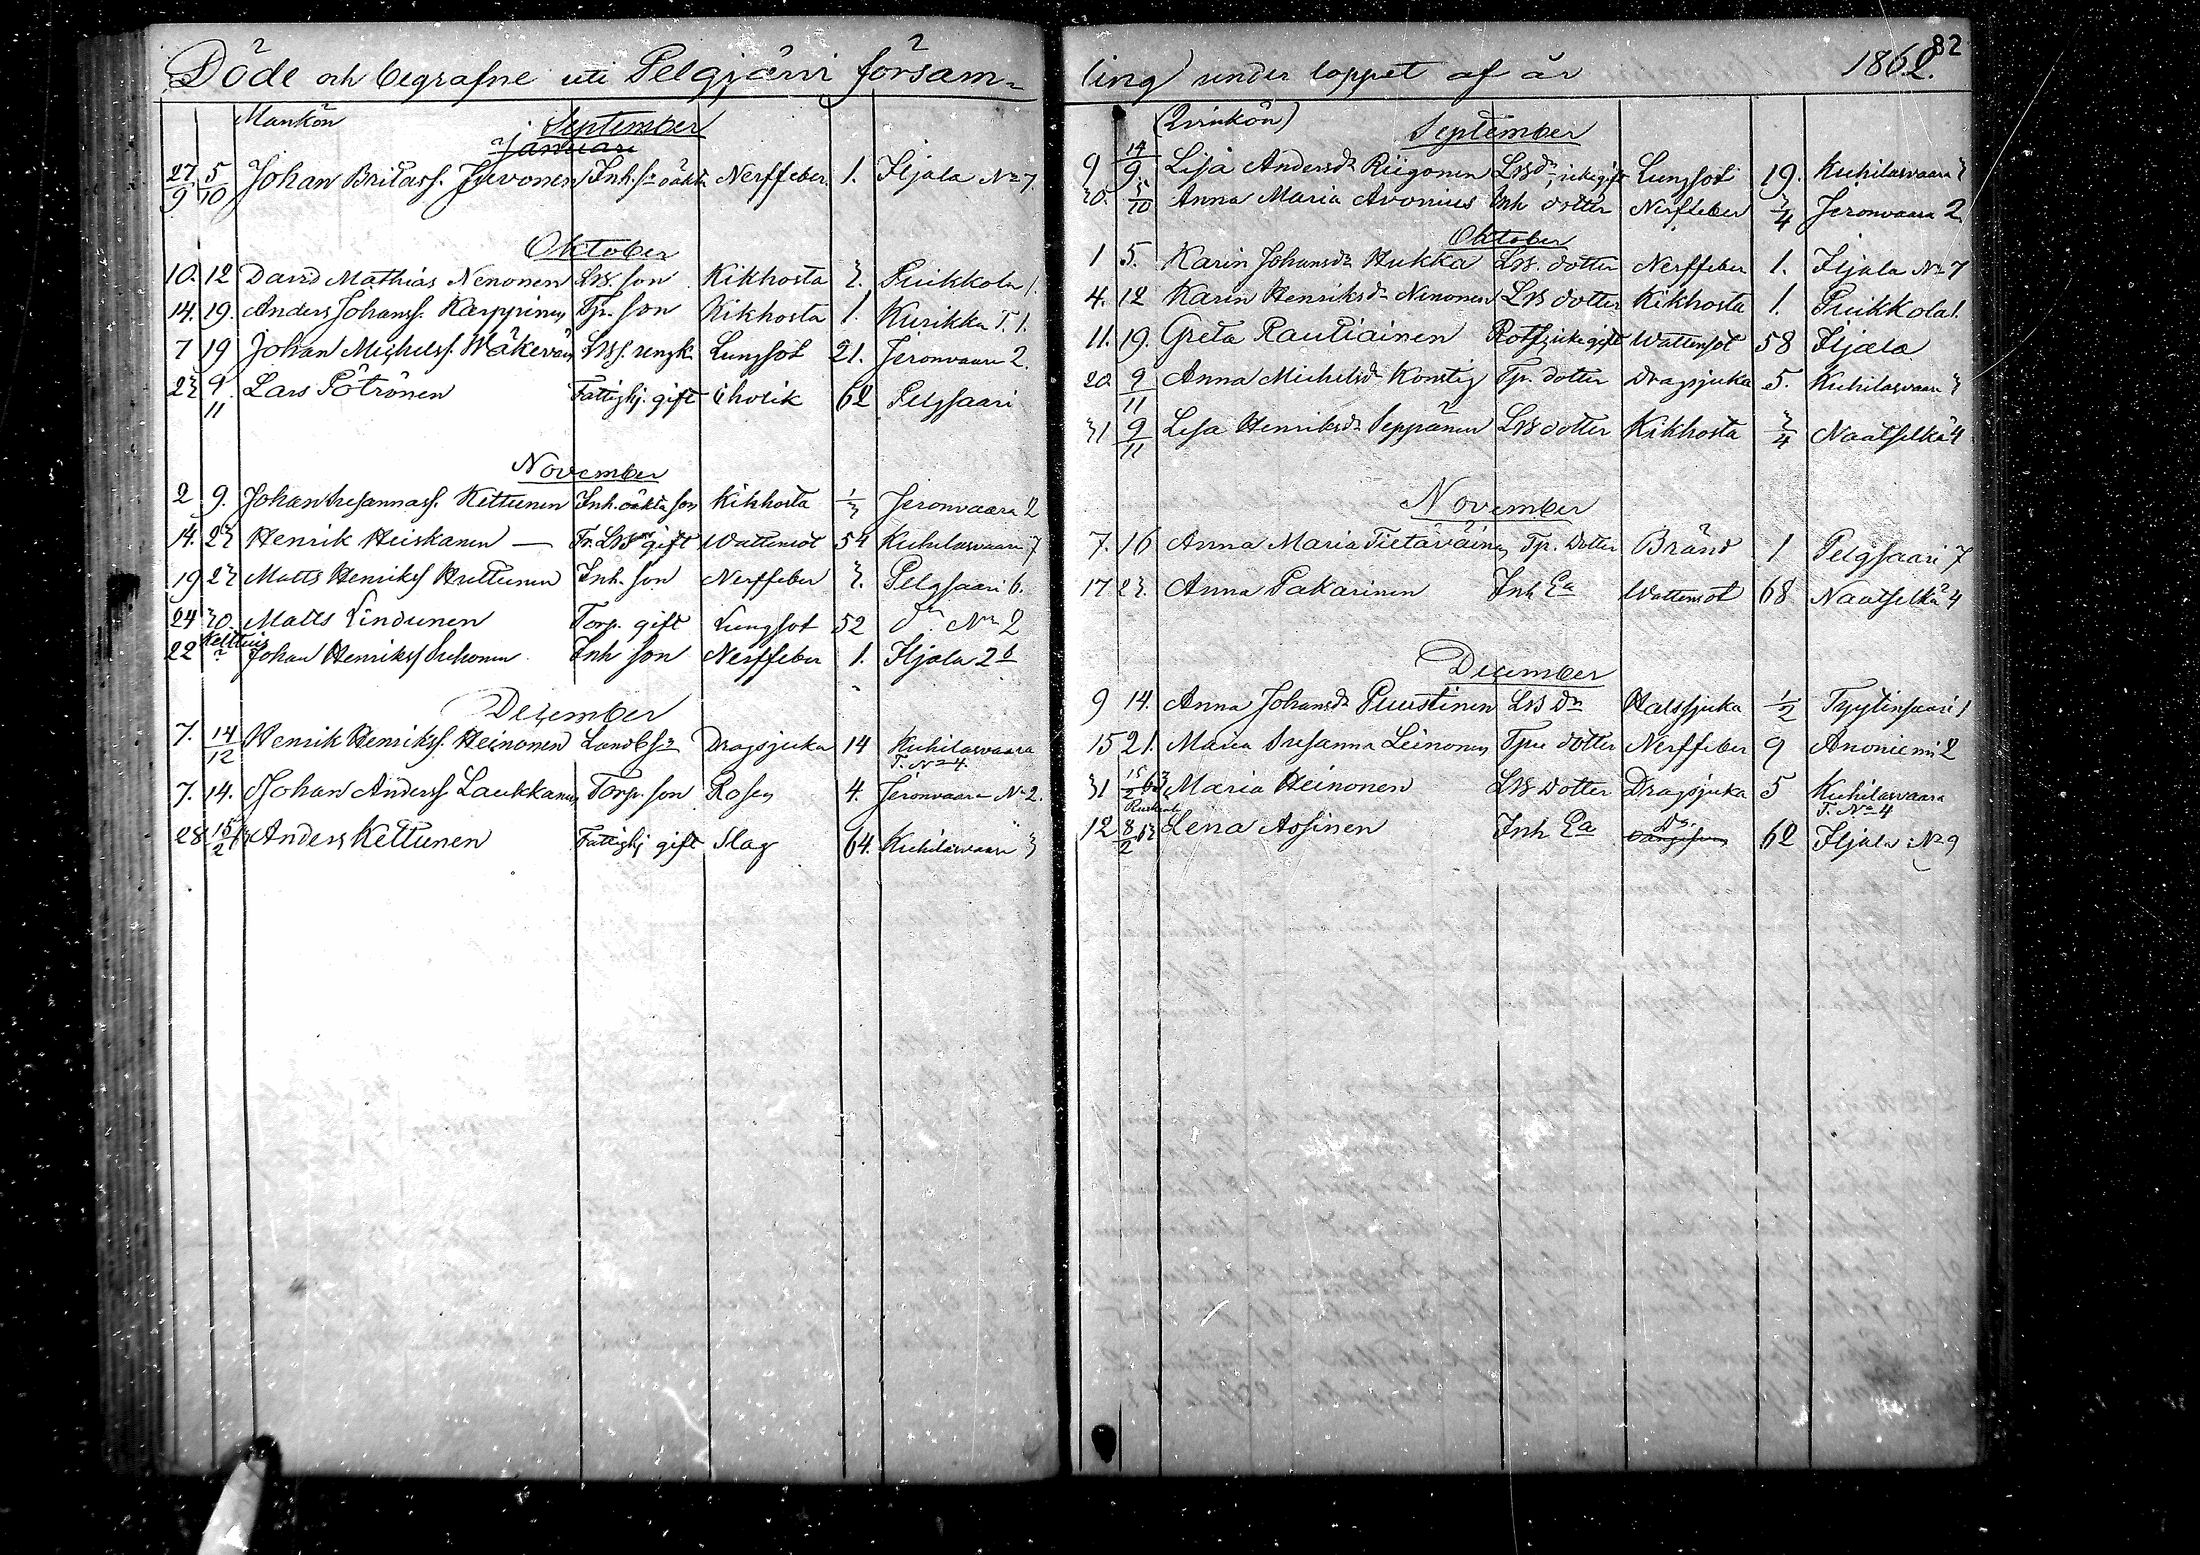 82
Döde och begrafne uti Pelgjärvi försam-
Mankön
September
Januari
27/9 5/10 Johan Britass. Jevonen Inh. sn oäkta Nerffeber 1. Iljala No 7
Oktober
10. 12 David Mathias Nenonen Lbs. son Kikhosta 3. Puikkola 1.
14. 19. Anders Johanss. Karppinen Tp. son Kikhosta 1. Kurikka T. 1.
7 19 Johan Michelss. Wäkeväin Lbs. rengk. Lungsot 21. Jeronvaara 2.
23 9/11 Lars Pötrönen Fattighj. gift Cholik 62 Pelgsaari
November
2 9. Johan Susannass. Kettunen Inh. oäkta son Kikhosta 1/3 Jeronvaara 2
14. 23 Henrik Heiskanen — Fr. Lbs gift Wattensot 54 Kuhilasvaara 7
19 23 Matts Henrikss Huttunen Inh. son Nerffeber 3. Pelgsaari 6.
24 30. Matts Lindunen Torp. gift Lungsot 52 do No 2
22 Johan Henrikss Suhonen Inh son Nerffeber 1. Iljala 2 b
December
7. 14/12 Henrik Henrikss. Heinonen Landb sn Dragsjuka 14 Kuhilasvaara
T. No 4.
7. 14. Johan Anderss Laukkanen Torp. son Rosen 4. Jeronvaara No 2.
28 15/2 63 Anders Kettunen Fattighj gift Slag 64. Kuhilasvaara 3
ling under loppet af år 1862.
(Qvinkön)
September
9 14/9. Lisa Andersdr Riigonen Lbs dr, icke gift Lungsot 19. Kuhilasvaara 3
30. 5/10 Anna Maria Avonius Inh dotter Nerffeber 3/4 Jeronvaara 2
Oktober
1 5. Karin Johansdr Hukka Lbs. dotter Nerffeber 1. Iljala No 7
4. 12 Karin Henriksdr Nenonen Lbs dotter Kikhosta 1 Puikkola 1.
11. 19. Greta Rautiainen Rotfj icke gift Wattensot 58 Iljala
20 9/11 Anna Michelsdr Konstig Tp. dotter Dragsjuka 5. Kuhilasvaara 3
31 9/11 Lisa Henriksdr Seppänen Lbs dotter Kikhosta 3/4 Naatselkä 4
November
7. 16 Anna Maria Tietäväinen Tp. Dotter Bränd 1 Pelgsaari 7
17 23. Anna Pakarinen Inh Ea Wattensot 68 Naatselkä 4
December
9 14. Anna Johansdr Puustinen Lbs dr Halssjuka 1/2 Tyytinsaari 1
15 21. Maria Susanna Leinonen Tpr dotter Nerffeber 9 Anoniemi 2
31 15/2 63 Maria Heinonen Lbs dotter Dragsjuka 5 Kuhilasvaara
T. No 4
12 8/2 63 Lena Assinen Inh Ea Do. 62 Iljala No 9